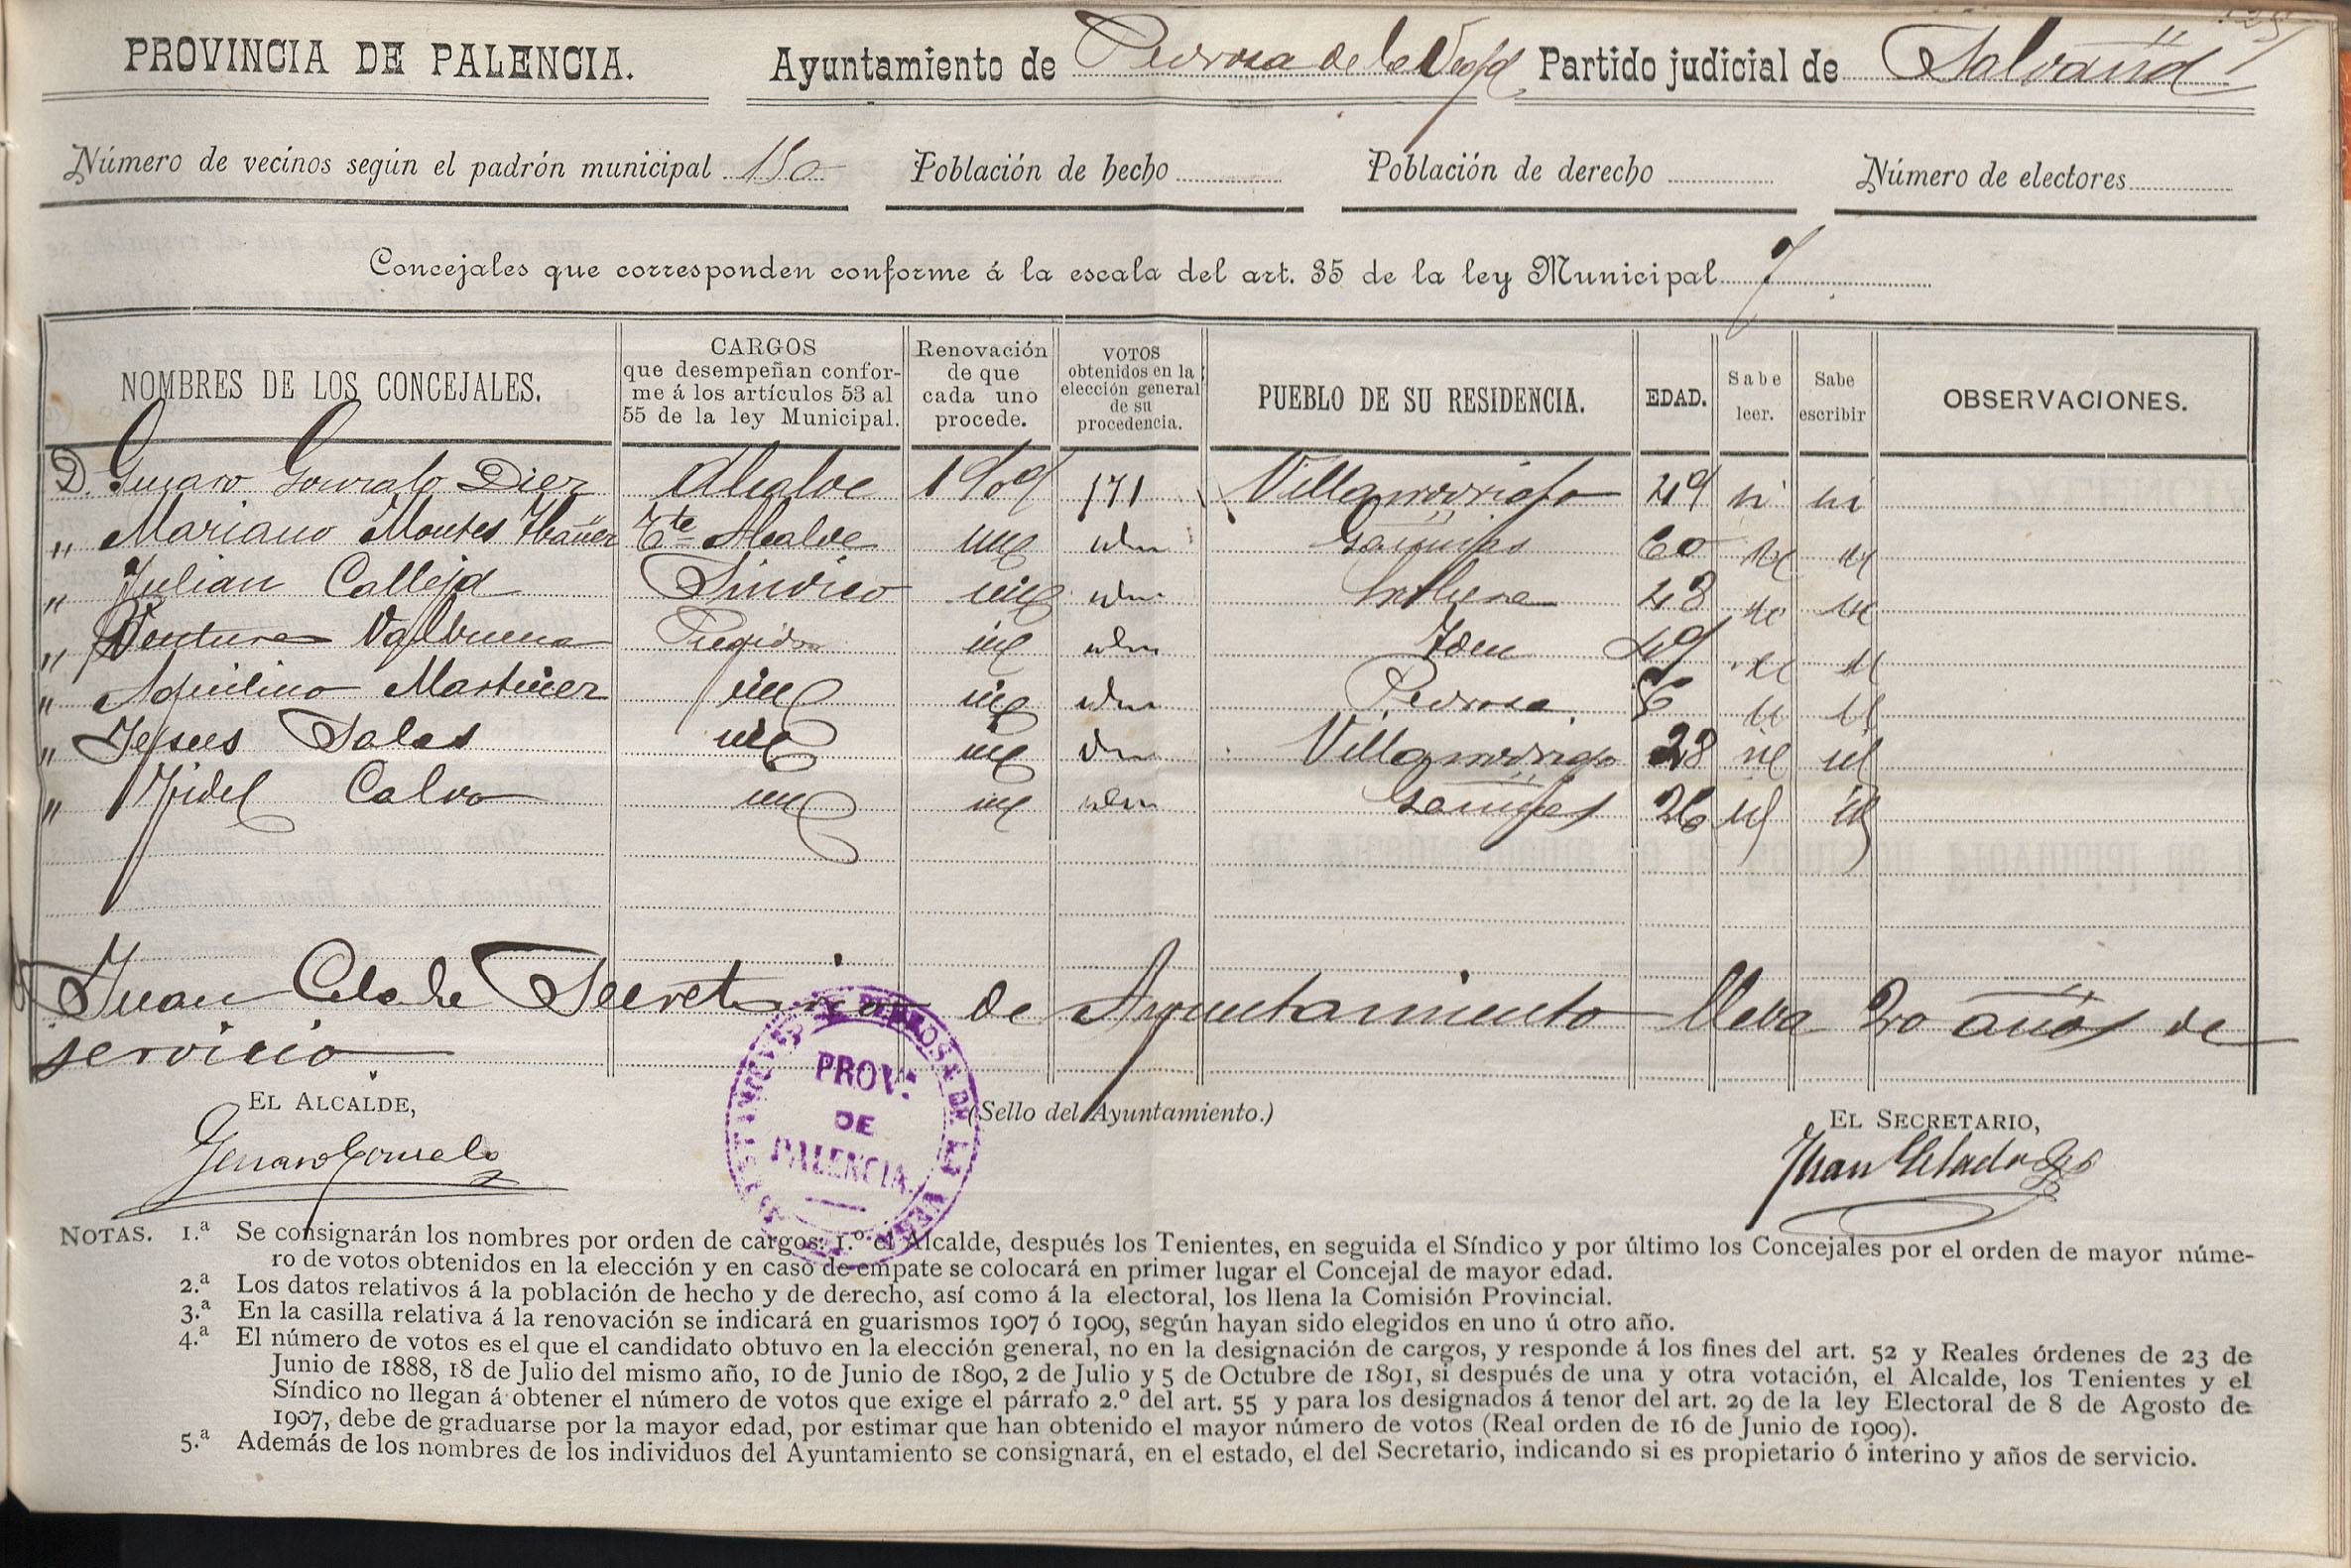 PROVINCIA DE PALENCIA. Ayuntamiento de Pedrosa de la Vega Partido judicial de Saldaña
Número de vecinos según el padrón municipal 150 Población de hecho Población de derecho Número de electores
Concejales que corresponden conforme á la escala del art. 35 de la ley Municipal 7
NOMBRES DE LOS CONCEJALES. CARGOS que desempeñan conforme á los artículos 53 al 55 de la ley Municipal. Renovación de que cada uno procede. VOTOS obtenidos en la elección general de su procedencia. PUEBLO DE SU RESIDENCIA. EDAD. Sabe leer. Sabe escribir OBSERVACIONES.
D. Genaro Gonzalo Diez Alcalde 1909 171 Villarrodrigo 49 si si
„ Mariano Montes Ibañez Tte Alcalde idm Gañinas 60
„ Julian Calleja Sindico idm 48
„ Ventura Valbuena Regidor idm Idem 49
„ Aquilino Martinez idm Pedrosa
„ Jesus Salas idm Villarrodrigo 28
„ Fidel Calvo idm Gañinas 26
Juan Celada Secretario de Ayuntamiento lleva 20 años de
servicio
EL ALCALDE, (Sello del Ayuntamiento.) EL SECRETARIO,
Genaro Gonzalo Juan Celada
PEDROSA DE LA VEGA
PROV.
DE
PALENCIA
NOTAS. 1.ª Se consignarán los nombres por orden de cargos: 1.º el Alcalde, después los Tenientes, en seguida el Síndico y por último los Concejales por el orden de mayor núme-
ro de votos obtenidos en la elección y en caso de empate se colocará en primer lugar el Concejal de mayor edad.
2.ª Los datos relativos á la población de hecho y de derecho, así como á la electoral, los llena la Comisión Provincial.
3.ª En la casilla relativa á la renovación se indicará en guarismos 1907 ó 1909, según hayan sido elegidos en uno ú otro año.
4.ª El número de votos es el que el candidato obtuvo en la elección general, no en la designación de cargos, y responde á los fines del art. 52 y Reales órdenes de 23 de
Junio de 1888, 18 de Julio del mismo año, 10 de Junio de 1890, 2 de Julio y 5 de Octubre de 1891, si después de una y otra votación, el Alcalde, los Tenientes y el
Síndico no llegan á obtener el número de votos que exige el párrafo 2.º del art. 55 y para los designados á tenor del art. 29 de la ley Electoral de 8 de Agosto de
1907, debe de graduarse por la mayor edad, por estimar que han obtenido el mayor número de votos (Real orden de 16 de Junio de 1909).
5.ª Además de los nombres de los individuos del Ayuntamiento se consignará, en el estado, el del Secretario, indicando si es propietario ó interino y años de servicio.